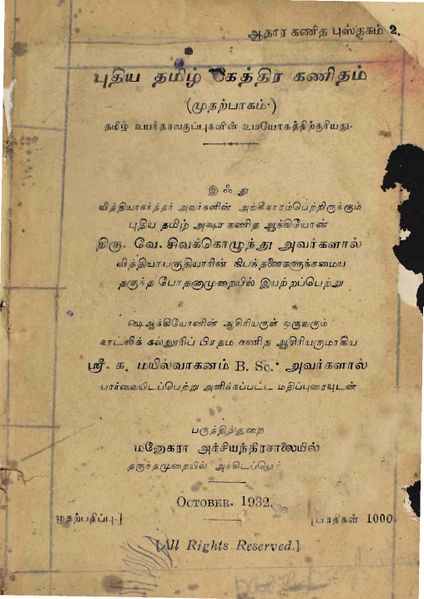 ஆதார கணித புஸ்தகம் 2.
புதிய தமிழ் கேத்திர கணிதம்
(முதற்பாகம்·)
தமிழ் உயர்தரவகுப்புகளின் உபயோகத்திற்குரியது·
இஃது
வித்தியாகர்த்தர் அவர்களின் அங்கீகாரம்பெற்றிருக்கும்
புதிய தமிழ் அக்ஷர கணித ஆக்கியோன்
திரு. வே. சிவக்கொழுந்து அவர்களால்
வித்தியாபகுதியாரின் நிபந்தனைகளுக்கமைய
தகுந்த போதனாமுறையில் இயற்றப்பெற்று
ஷெஆக்கியோனின் ஆசிரியருள் ஒருவரும்
காட்லிக் கல்லூரிப் பிரதம கணித ஆசிரியருமாகிய
ஸ்ரீ. க. மயில்வாகனம் B. Sc. அவர்களால்
பார்வையிடப்பெற்று அளிக்கப்பட்ட மதிப்புரையுடன்
பருத்தித்துறை
மனோகரா அச்சியந்திரசாலையில்
தகுந்தமுறையில் அச்சிடப்பெ
OCTOBER. 1932.
முதற்பதிப்பு.]
[பிரதிகள் 1000
[All Rights Reserved.]